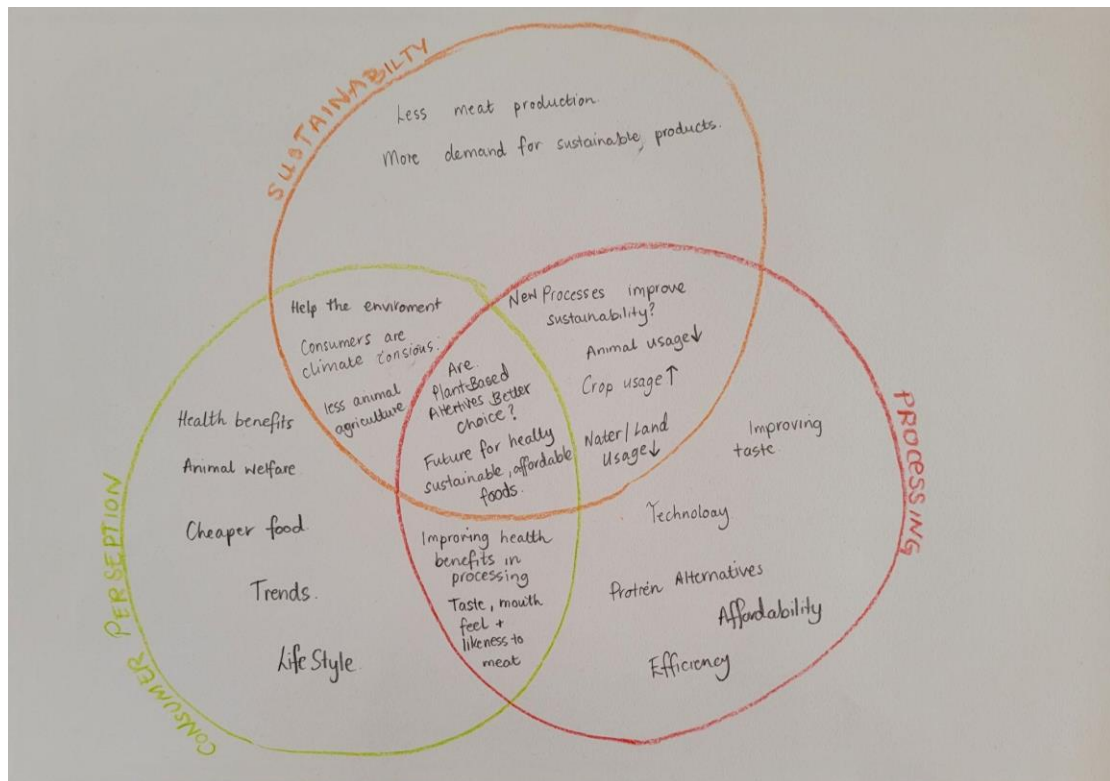 SUSTAINABILTY
Less meat production.
More demand for sustainable products.
Help the enviroment
Consumers are
climate consious.
less animal
agriculture
New Processes improve
sustainability?
Animal usage↓
Crop usage↑
Water/Land
Usage↓
Are
Plant-Based
Altertives Better
choice?
Future for healty
sustainable, affordable
foods.
CONSUMER PERSEPTION
Health benefits
Animal welfare
Cheaper food
Trends.
Life Style
Improring health
benefits in
processing
Taste, mouth
feel +
likeness to
meat
PROCESSING
Improving
taste
Technology
Protien Alternatives
Affordability
Efficiency